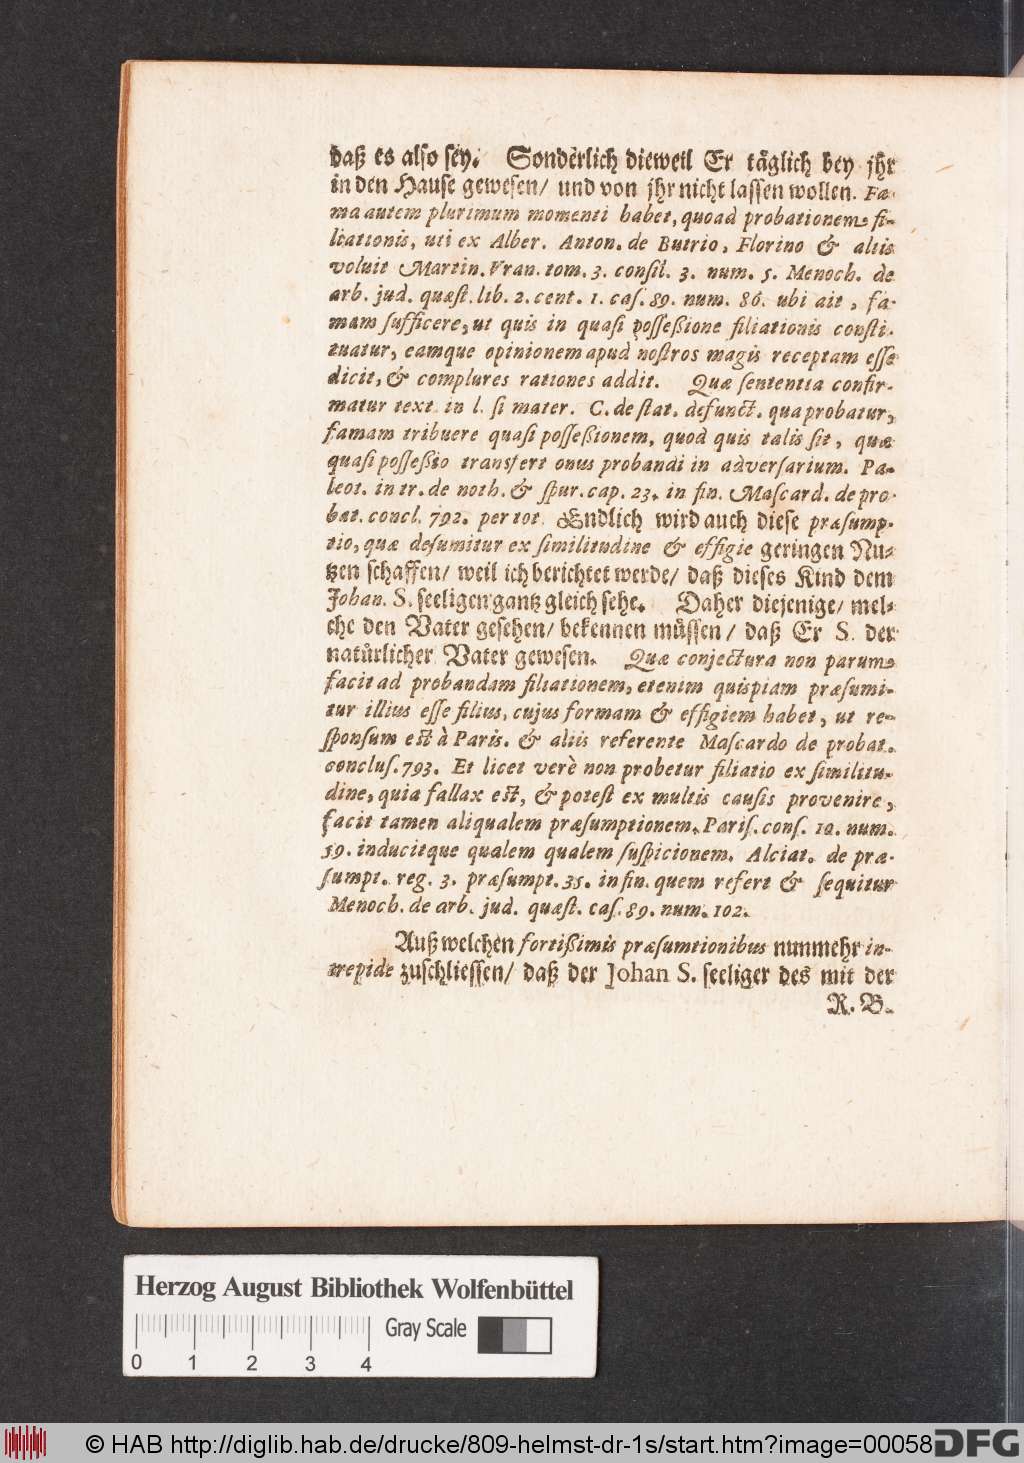 daß es also sey. Sonderlich dieweil Er täglich bey jhr
in den Hause gewesen/ und von jhr nicht lassen wollen. Fa-
ma autem plurimum momenti habet, quoad probationem fi-
liationis, uti ex Alber. Anton. de Butrio, Florino & aliis
voluit Martin. Vran. tom. 3. consil. 3. num. 5. Menoch. de
arb. jud. quæst. lib. 2. cent. 1. cas. 89. num. 86. ubi ait, fa-
mam sufficere, ut quis in quasi possessione filiationis consti-
tuatur, eamque opinionem apud nostros magis receptam esse
dicit, & complures rationes addit. Quæ sententia confir-
matur text. in l. si mater. C. de stat. defunct. qua probatur,
famam tribuere quasi possessionem, quod quis talis sit, quæ
quasi possessio transfert onus probandi in adversarium. Pa-
leot. in tr. de noth. & spur. cap. 23. in fin. Mascard. de pro-
bat. concl. 792. per tot. Endlich wird auch diese præsump-
tio, quæ desumitur ex similitudine & effigie geringen Nu-
tzen schaffen/ weil ich berichtet werde/ daß dieses Kind dem
Johan. S. seeligen gantz gleich sehe. Daher diejenige/ wel-
che den Vater gesehen/ bekennen müssen/ daß Er S. der
natürlicher Vater gewesen. Quæ conjectura non parum
facit ad probandam filiationem, etenim quispiam præsumi-
tur illius esse filius, cujus formam & effigiem habet, ut re-
sponsum est à Paris. & aliis referente Mascardo de probat.
conclus. 793. Et licet verè non probetur filiatio ex similitu-
dine, quia fallax est, & potest ex multis causis provenire,
facit tamen aliqualem præsumptionem. Paris. cons. 10. num.
59. inducitque qualem qualem suspicionem. Alciat. de præ-
sumpt. reg. 3. præsumpt. 35. in fin. quem refert & sequitur
Menoch. de arb. jud. quæst. cas. 89. num. 102.
Auß welchen fortissimis præsumtionibus nunmehr in-
trepide zuschliessen/ daß der Johan S. seeliger des mit der
R. B.
Herzog August Bibliothek Wolfenbüttel
Gray Scale
0 1 2 3 4
© HAB http://diglib.hab.de/drucke/809-helmst-dr-1s/start.htm?image=00058
DFG